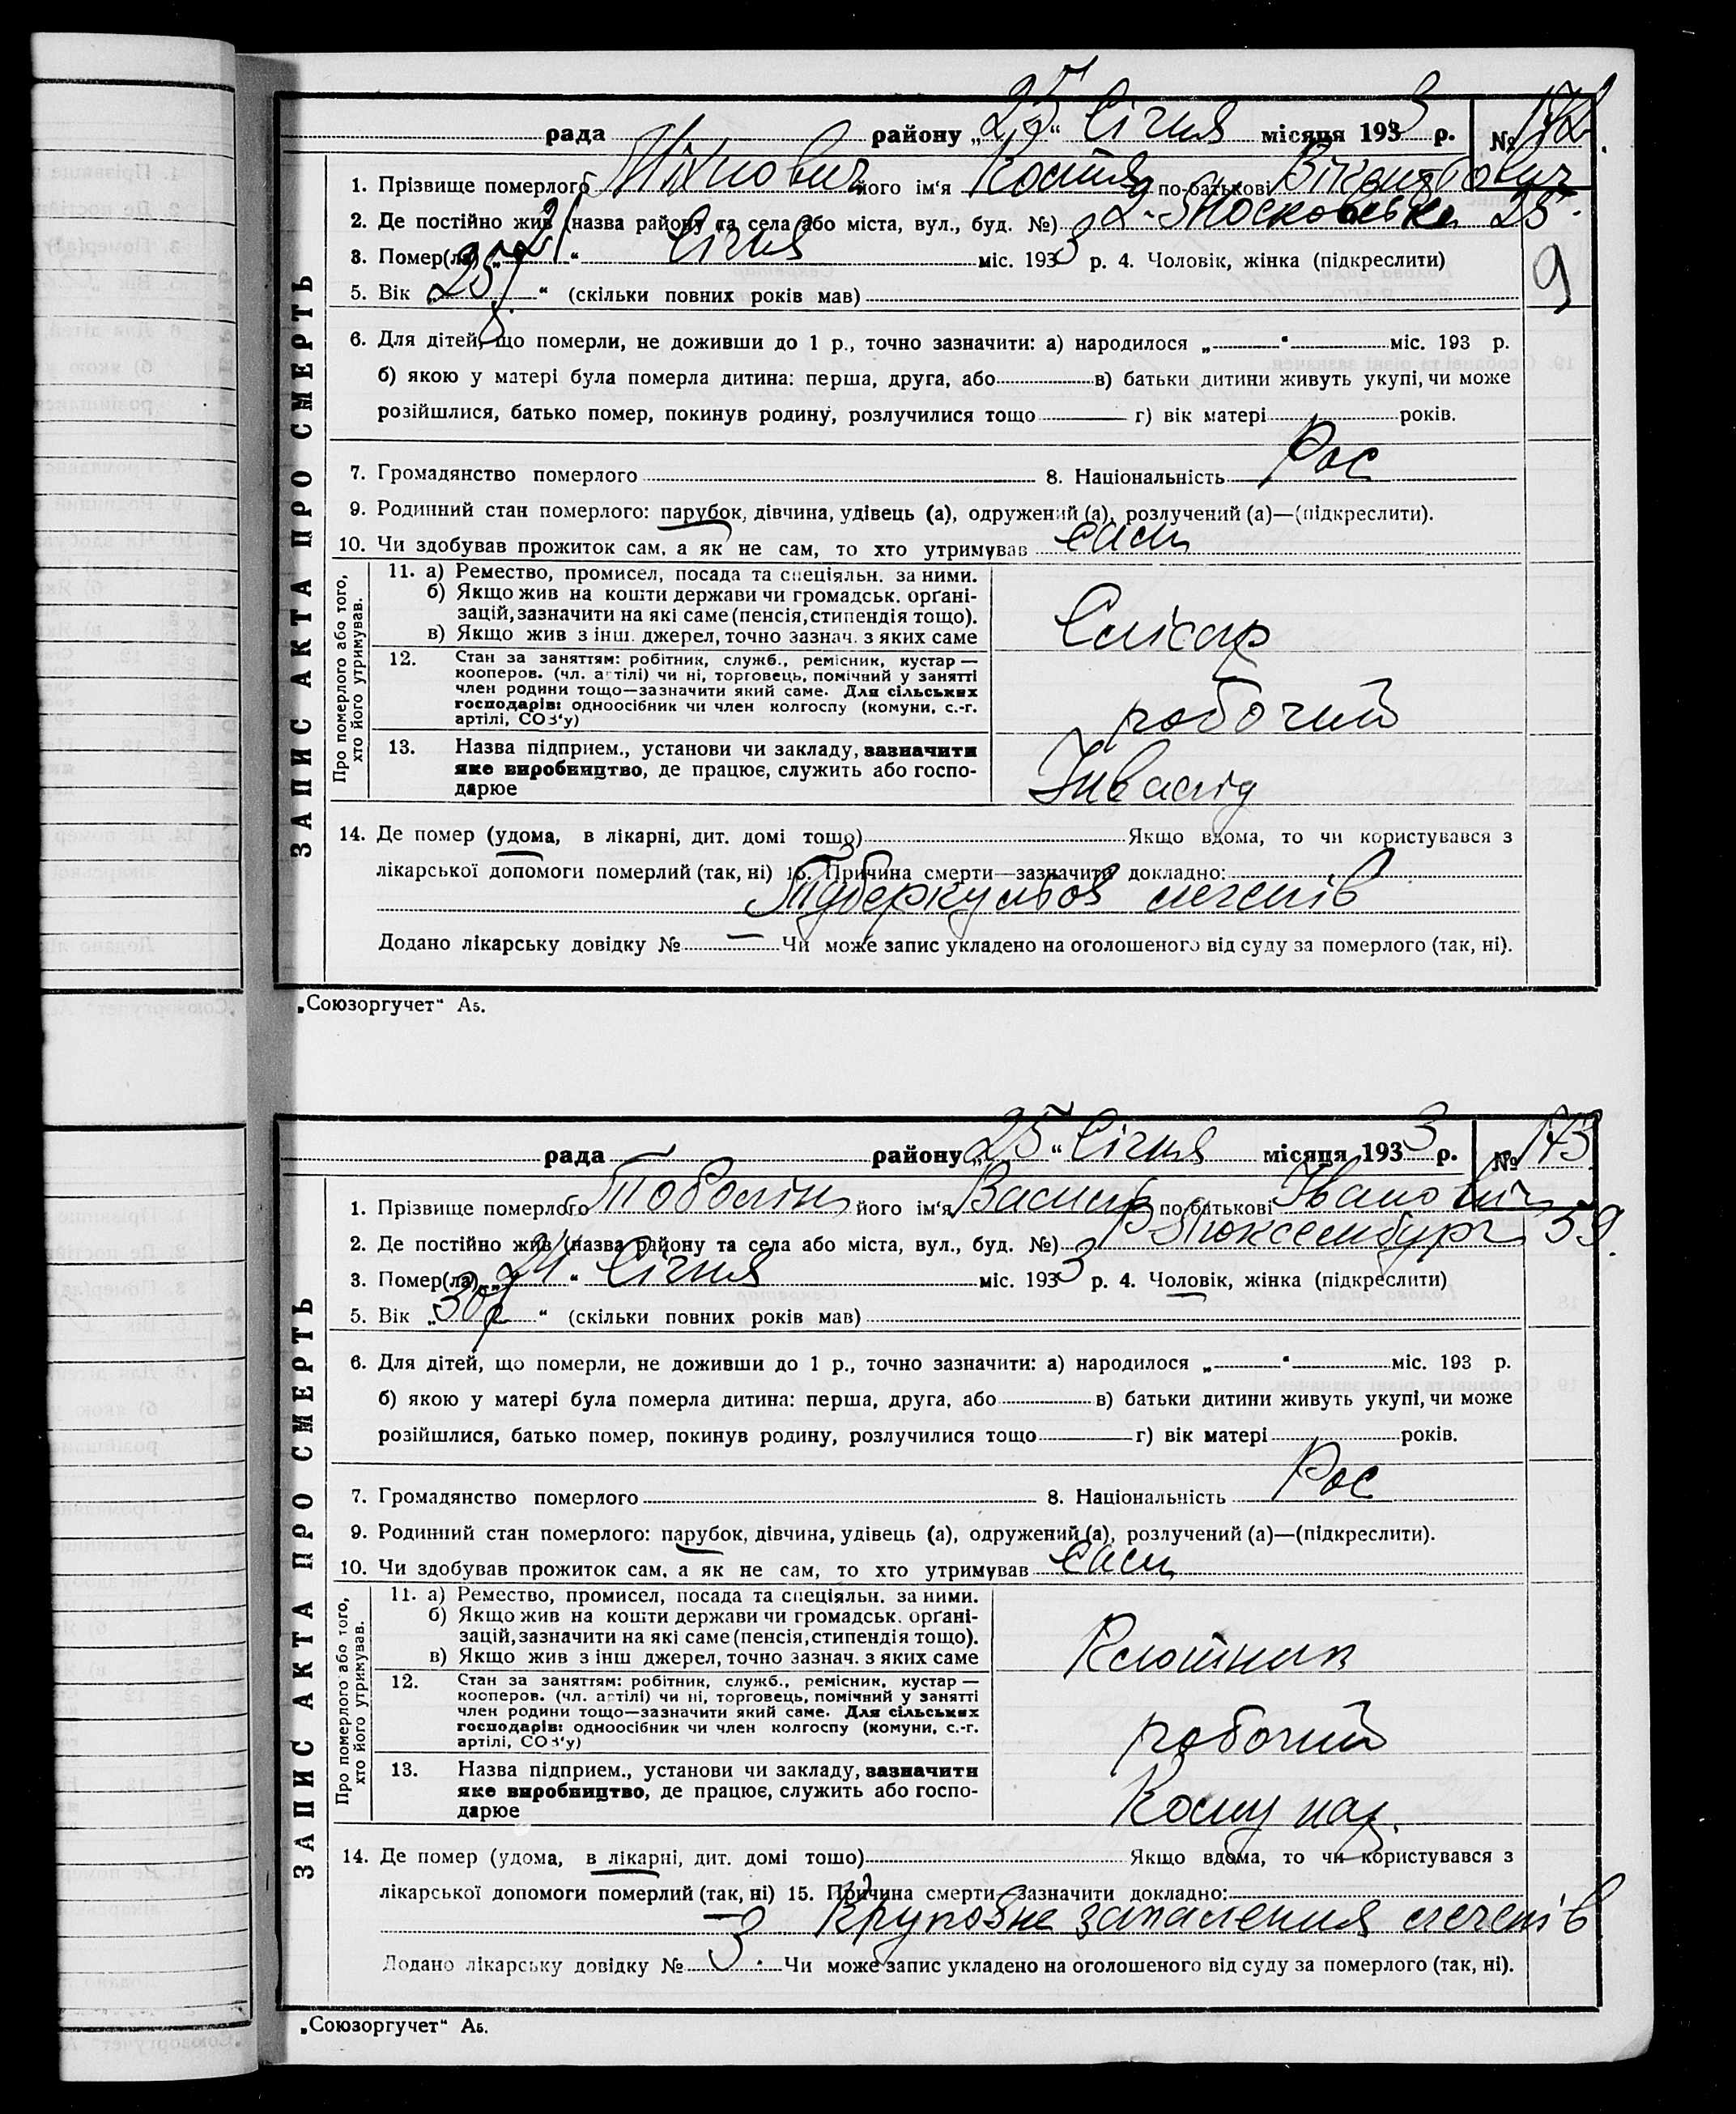 рада району „25“ Січня місяця 1933 р. № 172.
1. Прізвище померлого Міхнович його ім'я Костя по-батькові Вікентьович
2. Де постійно жив (назва району та села або міста, вул., буд. №) 2. Московська 25.
3. Помер(ла) „21“ Січня міс. 1933 р. 4. Чоловік, жінка (підкреслити)
9
5. Вік „25 р.“ (скільки повних років мав)
6. Для дітей, що померли, не доживши до 1 р., точно зазначити: а) народилося „ “ міс. 193 р.
б) якою у матері була померла дитина: перша, друга, або в) батьки дитини живуть укупі, чи може
розійшлися, батько помер, покинув родину, розлучилися тощо г) вік матері років.
7. Громадянство померлого 8. Національність Рос
9. Родинний стан померлого: парубок, дівчина, удівець (а), одружений (а), розлучений (а)—(підкреслити).
10. Чи здобував прожиток сам, а як не сам, то хто утримував сам
ЗАПИС АКТА ПРО СМЕРТЬ
Про померлого або того,
хто його утримував.
11. а) Ремество, промисел, посада та спеціяльн. за ними.
б) Якщо жив на кошти держави чи громадськ. орґані-
зацій, зазначити на які саме (пенсія, стипендія тощо).
в) Якщо жив з інш. джерел, точно зазнач. з яких саме
Слісар
12. Стан за заняттям: робітник, служб., ремісник, кустар —
кооперов. (чл. артілі) чи ні, торговець, помічний у занятті
член родини тощо—зазначити який саме. Для сільських
господарів: одноосібник чи член колгоспу (комуни, с.-г.
артілі, СОЗ'у)
робочий
13. Назва підприєм., установи чи закладу, зазначити
яке виробництво, де працює, служить або госпо-
дарює
Інвалід
14. Де помер (удома, в лікарні, дит. домі тощо) Якщо вдома, то чи користувався з
лікарської допомоги померлий (так, ні) 15. Причина смерти—зазначити докладно:
Туберкульоз легенів
Додано лікарську довідку № — Чи може запис укладено на оголошеного від суду за померлого (так, ні).
„Союзоргучет“ А5.
рада району „25“ Січня місяця 1933 р. № 173
1. Прізвище померлого Тоболін його ім'я Василь по батькові Іванович
2. Де постійно жив (назва району та села або міста, вул., буд. №) Р Люксембург 59.
3. Помер(ла) „24“ Січня міс. 1933 р. 4. Чоловік, жінка (підкреслити)
5. Вік „30 р“ (скільки повних років мав)
6. Для дітей, що померли, не доживши до 1 р., точно зазначити: а) народилося „ “ міс. 193 р.
б) якою у матері була померла дитина: перша, друга, або в) батьки дитини живуть укупі, чи може
розійшлися, батько помер, покинув родину, розлучилися тощо г) вік матері років.
7. Громадянство померлого 8. Національність Рос
9. Родинний стан померлого: парубок, дівчина, удівець (а), одружений (а), розлучений (а)—(підкреслити).
10. Чи здобував прожиток сам, а як не сам, то хто утримував сам
ЗАПИС АКТА ПРО СМЕРТЬ
Про померлого або того,
хто його утримував.
11. а) Ремество, промисел, посада та спеціяльн. за ними.
б) Якщо жив на кошти держави чи громадськ. орґані-
зацій, зазначити на які саме (пенсія, стипендія тощо).
в) Якщо жив з інш джерел, точно зазнач. з яких саме
12. Стан за заняттям: робітник, служб., ремісник, кустар —
кооперов. (чл. артілі) чи ні, торговець, помічний у занятті
член родини тощо—зазначити який саме. Для сільських
господарів: одноосібник чи член колгоспу (комуни, с.-г.
артілі, СОЗ'у)
робочий
13. Назва підприєм., установи чи закладу, зазначити
яке виробництво, де працює, служить або госпо-
дарює
14. Де помер (удома, в лікарні, дит. домі тощо) Якщо вдома, то чи користувався з
лікарської допомоги померлий (так, ні) 15. Причина смерти—зазначити докладно:
Крупозне запалення легенів
Додано лікарську довідку № 3. Чи може запис укладено на оголошеного від суду за померлого (так, ні).
„Союзоргучет“ А5.